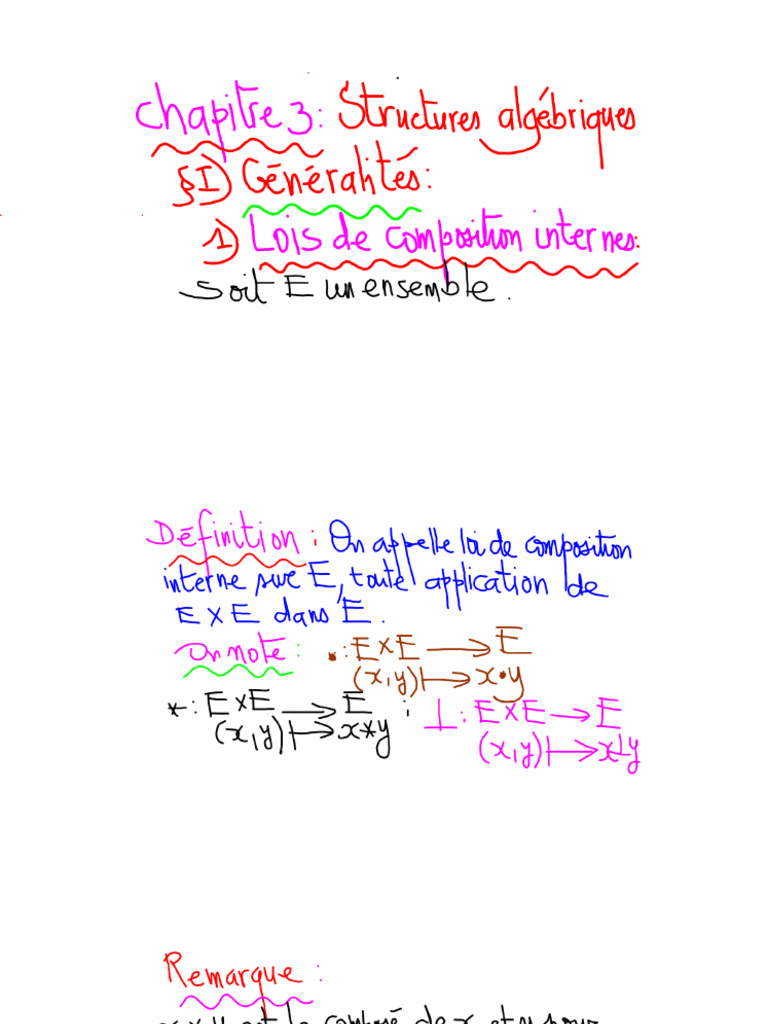 Chapitre 3 : Structures algébriques
§I) Généralités :
1) Lois de composition internes :
Soit E un ensemble.
Définition : On appelle loi de composition
interne sur E, toute application de
E × E dans E.
On note : • : E × E ⟶ E
(x, y) ⟼ x • y
* : E × E ⟶ E ;
(x, y) ⟼ x * y
⊥ : E × E ⟶ E
(x, y) ⟼ x ⊥ y
Remarque :
x * y est le composé de x et y pour